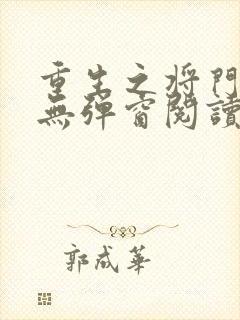 重生之将門
無彈窗閱讀
郭成華